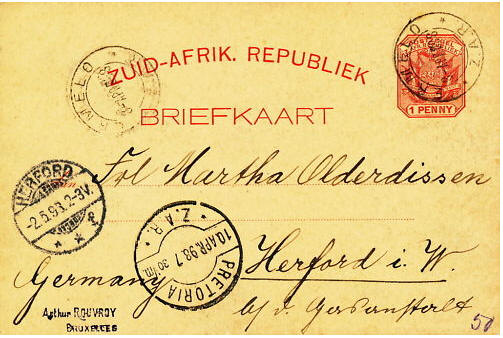 ZUID-AFRIK. REPUBLIEK
BRIEFKAART
1 PENNY
ERMELO Z.A.R.
ERMELO Z.A.R.
Frl Martha Olderdissen
HERFORD
-2.5.98.2-3V.
Z.A.R.
10APR.98.7 30 M.
PRETORIA
Herford i. W.
Germany
a/ d. Gasanstalt
Arthur ROUVROY
BRUXELLES
50